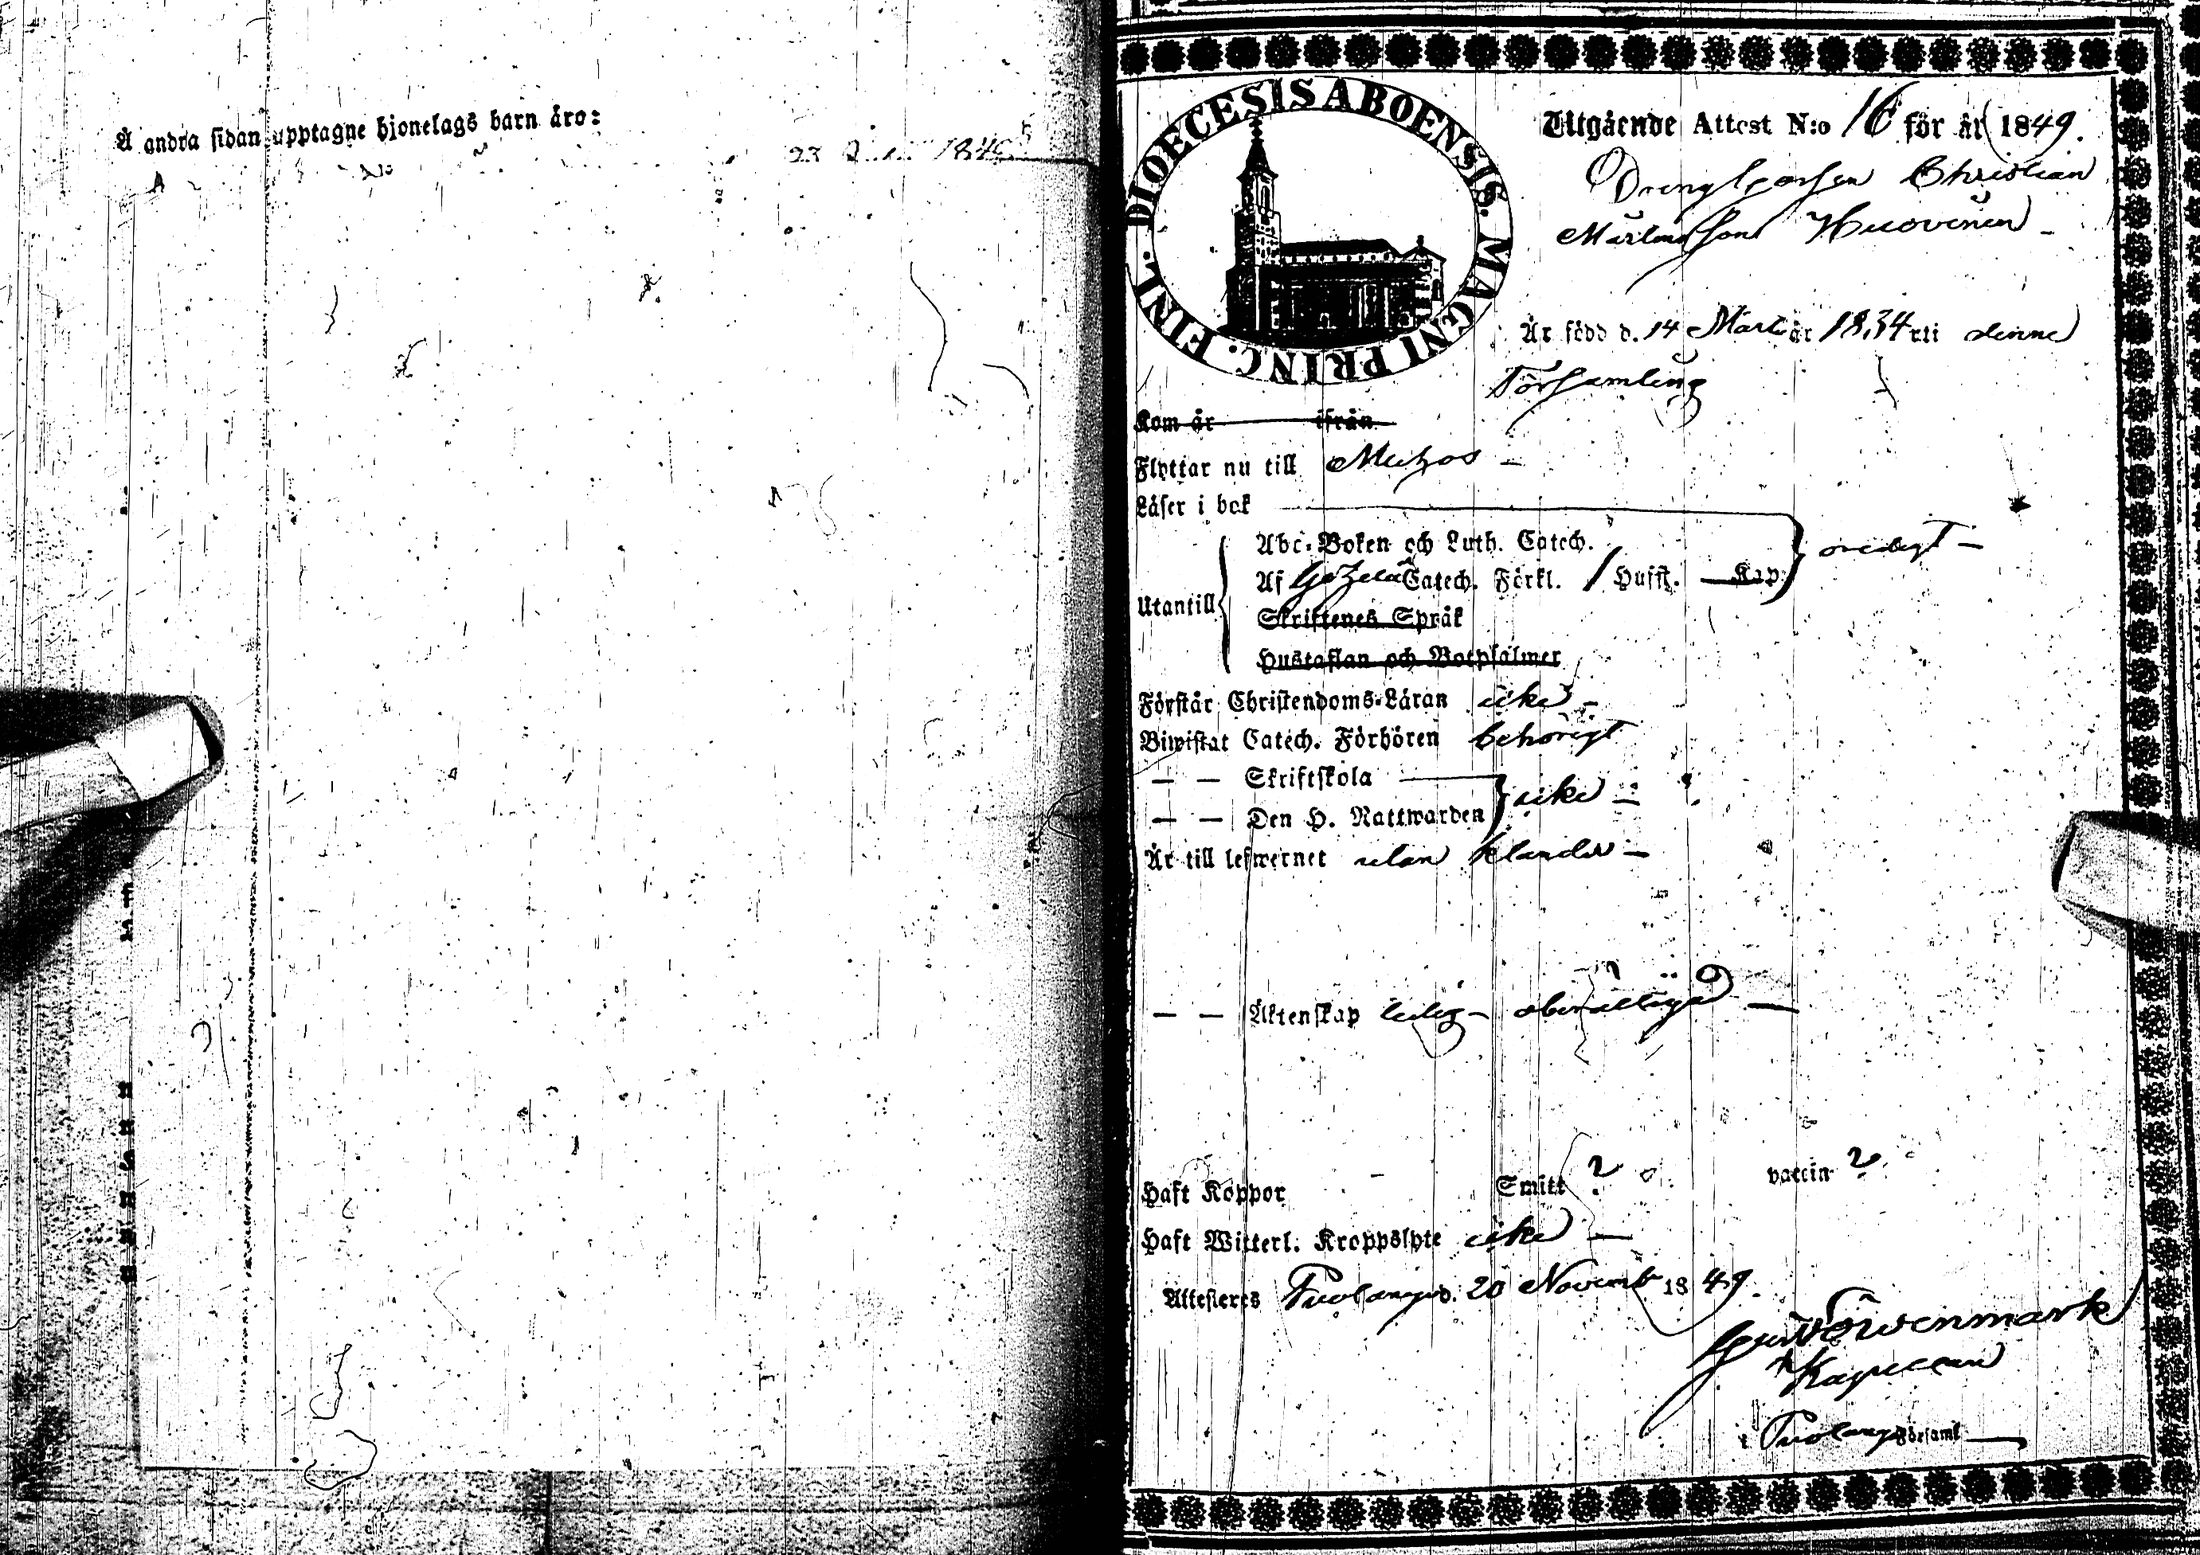 Å andra sidan upptagne hjonelags barn äro:
DIOECESIS ABOENSIS. MAGNI PRINC. FINL.
Utgående Attest N:o 16 för år 1849.
Christian
Huovinen
Är född d. 14 Martii år 1834 rti denne
Församling
Kom år ifrån
Flyttar nu till Muhos
Läser i bok
Abc-Boken och Luth. Catech.
Af Catech. Förkl. / Husst. Kap.
Utantill
Skriftenes Språk
Hustaflan och Botpsalmer
Förstår Christendoms-Läran icke
Biwistat Catech. Förhören behörigt
— — Skriftskola
— — Den H. Nattwarden icke
Är till lefwernet utan klander —
— — Äktenskap ledig —
Haft Koppor Smitt ? vaccin ?
Haft Witterl. Kroppslyte icke —
Attesteres d. 20 Novemb 1849.
Kapellan
i Församl.